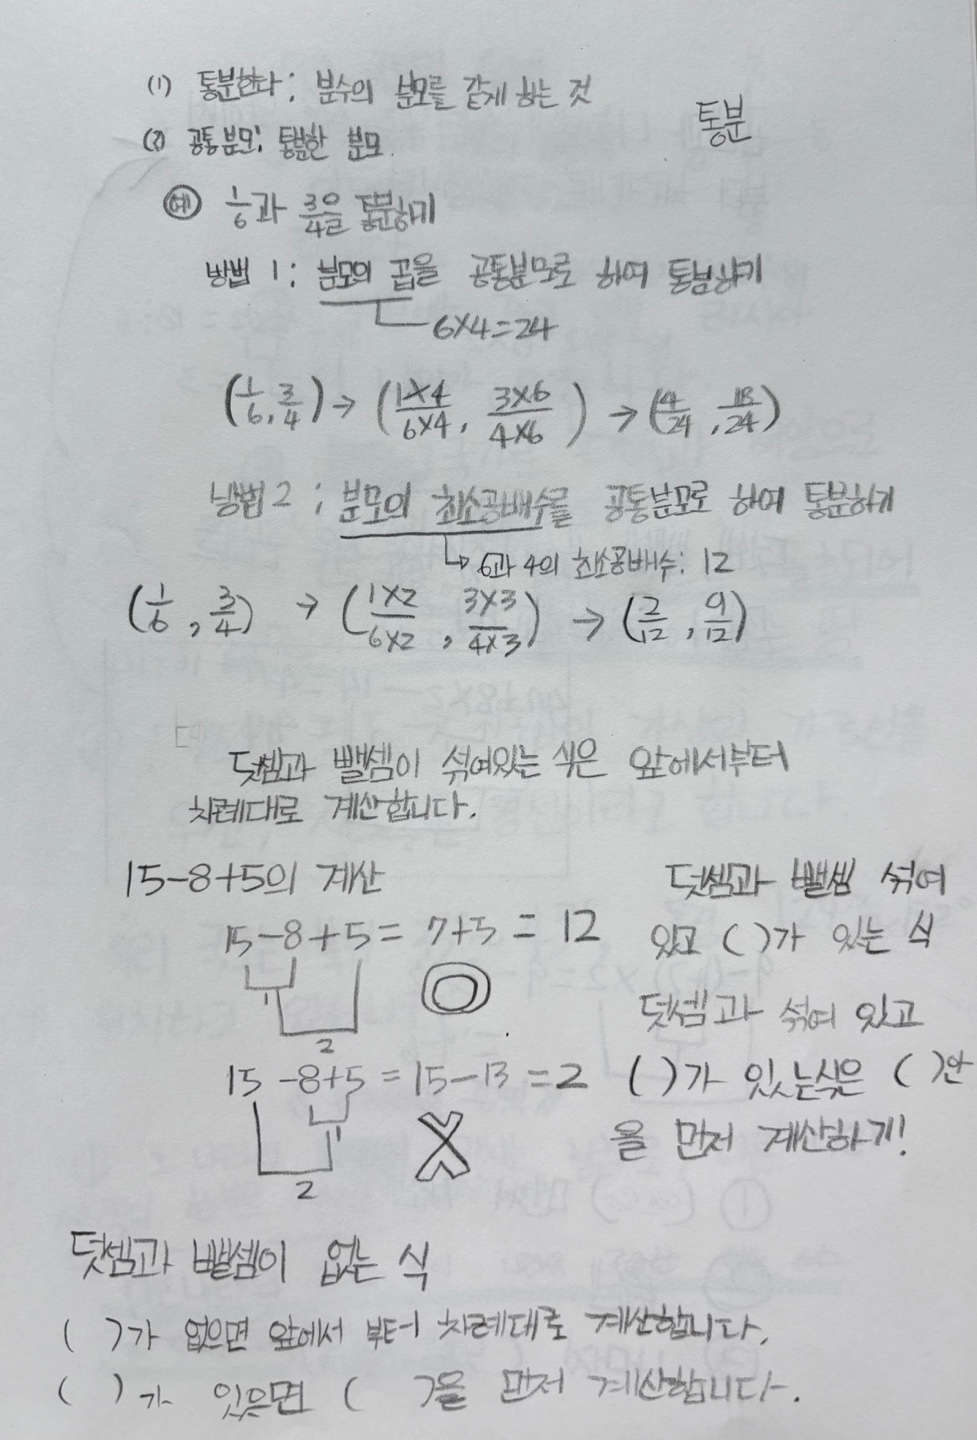 (1) 통분한다: 분수의 분모를 같게 하는 것
통분
(2) 공통분모: 통분한 분모.
예 1/6과 3/4을 통분하기
방법 1: 분모의 곱을 공통분모로 하여 통분하기
6×4=24
(1/6, 3/4) → (1×4/6×4, 3×6/4×6) → (4/24, 18/24)
방법2: 분모의 최소공배수를 공통분모로 하여 통분하기
↳ 6과 4의 최소공배수: 12
(1/6, 3/4) → (1×2/6×2, 3×3/4×3) → (2/12, 9/12)
덧셈과 뺄셈이 섞여있는 식은 앞에서부터
차례대로 계산합니다.
15-8+5의 계산
15-8+5=7+5=12
1
2
15-8+5=15-13=2
1
2
덧셈과 뺄셈 섞여
있고 ( )가 있는 식
덧셈과 섞여 있고
( )가 있는식은 ( )안
을 먼저 계산하기!
덧셈과 뺄셈이 없는 식
( )가 없으면 앞에서 부터 차례대로 계산합니다.
( )가 있으면 ( )을 먼저 계산합니다.